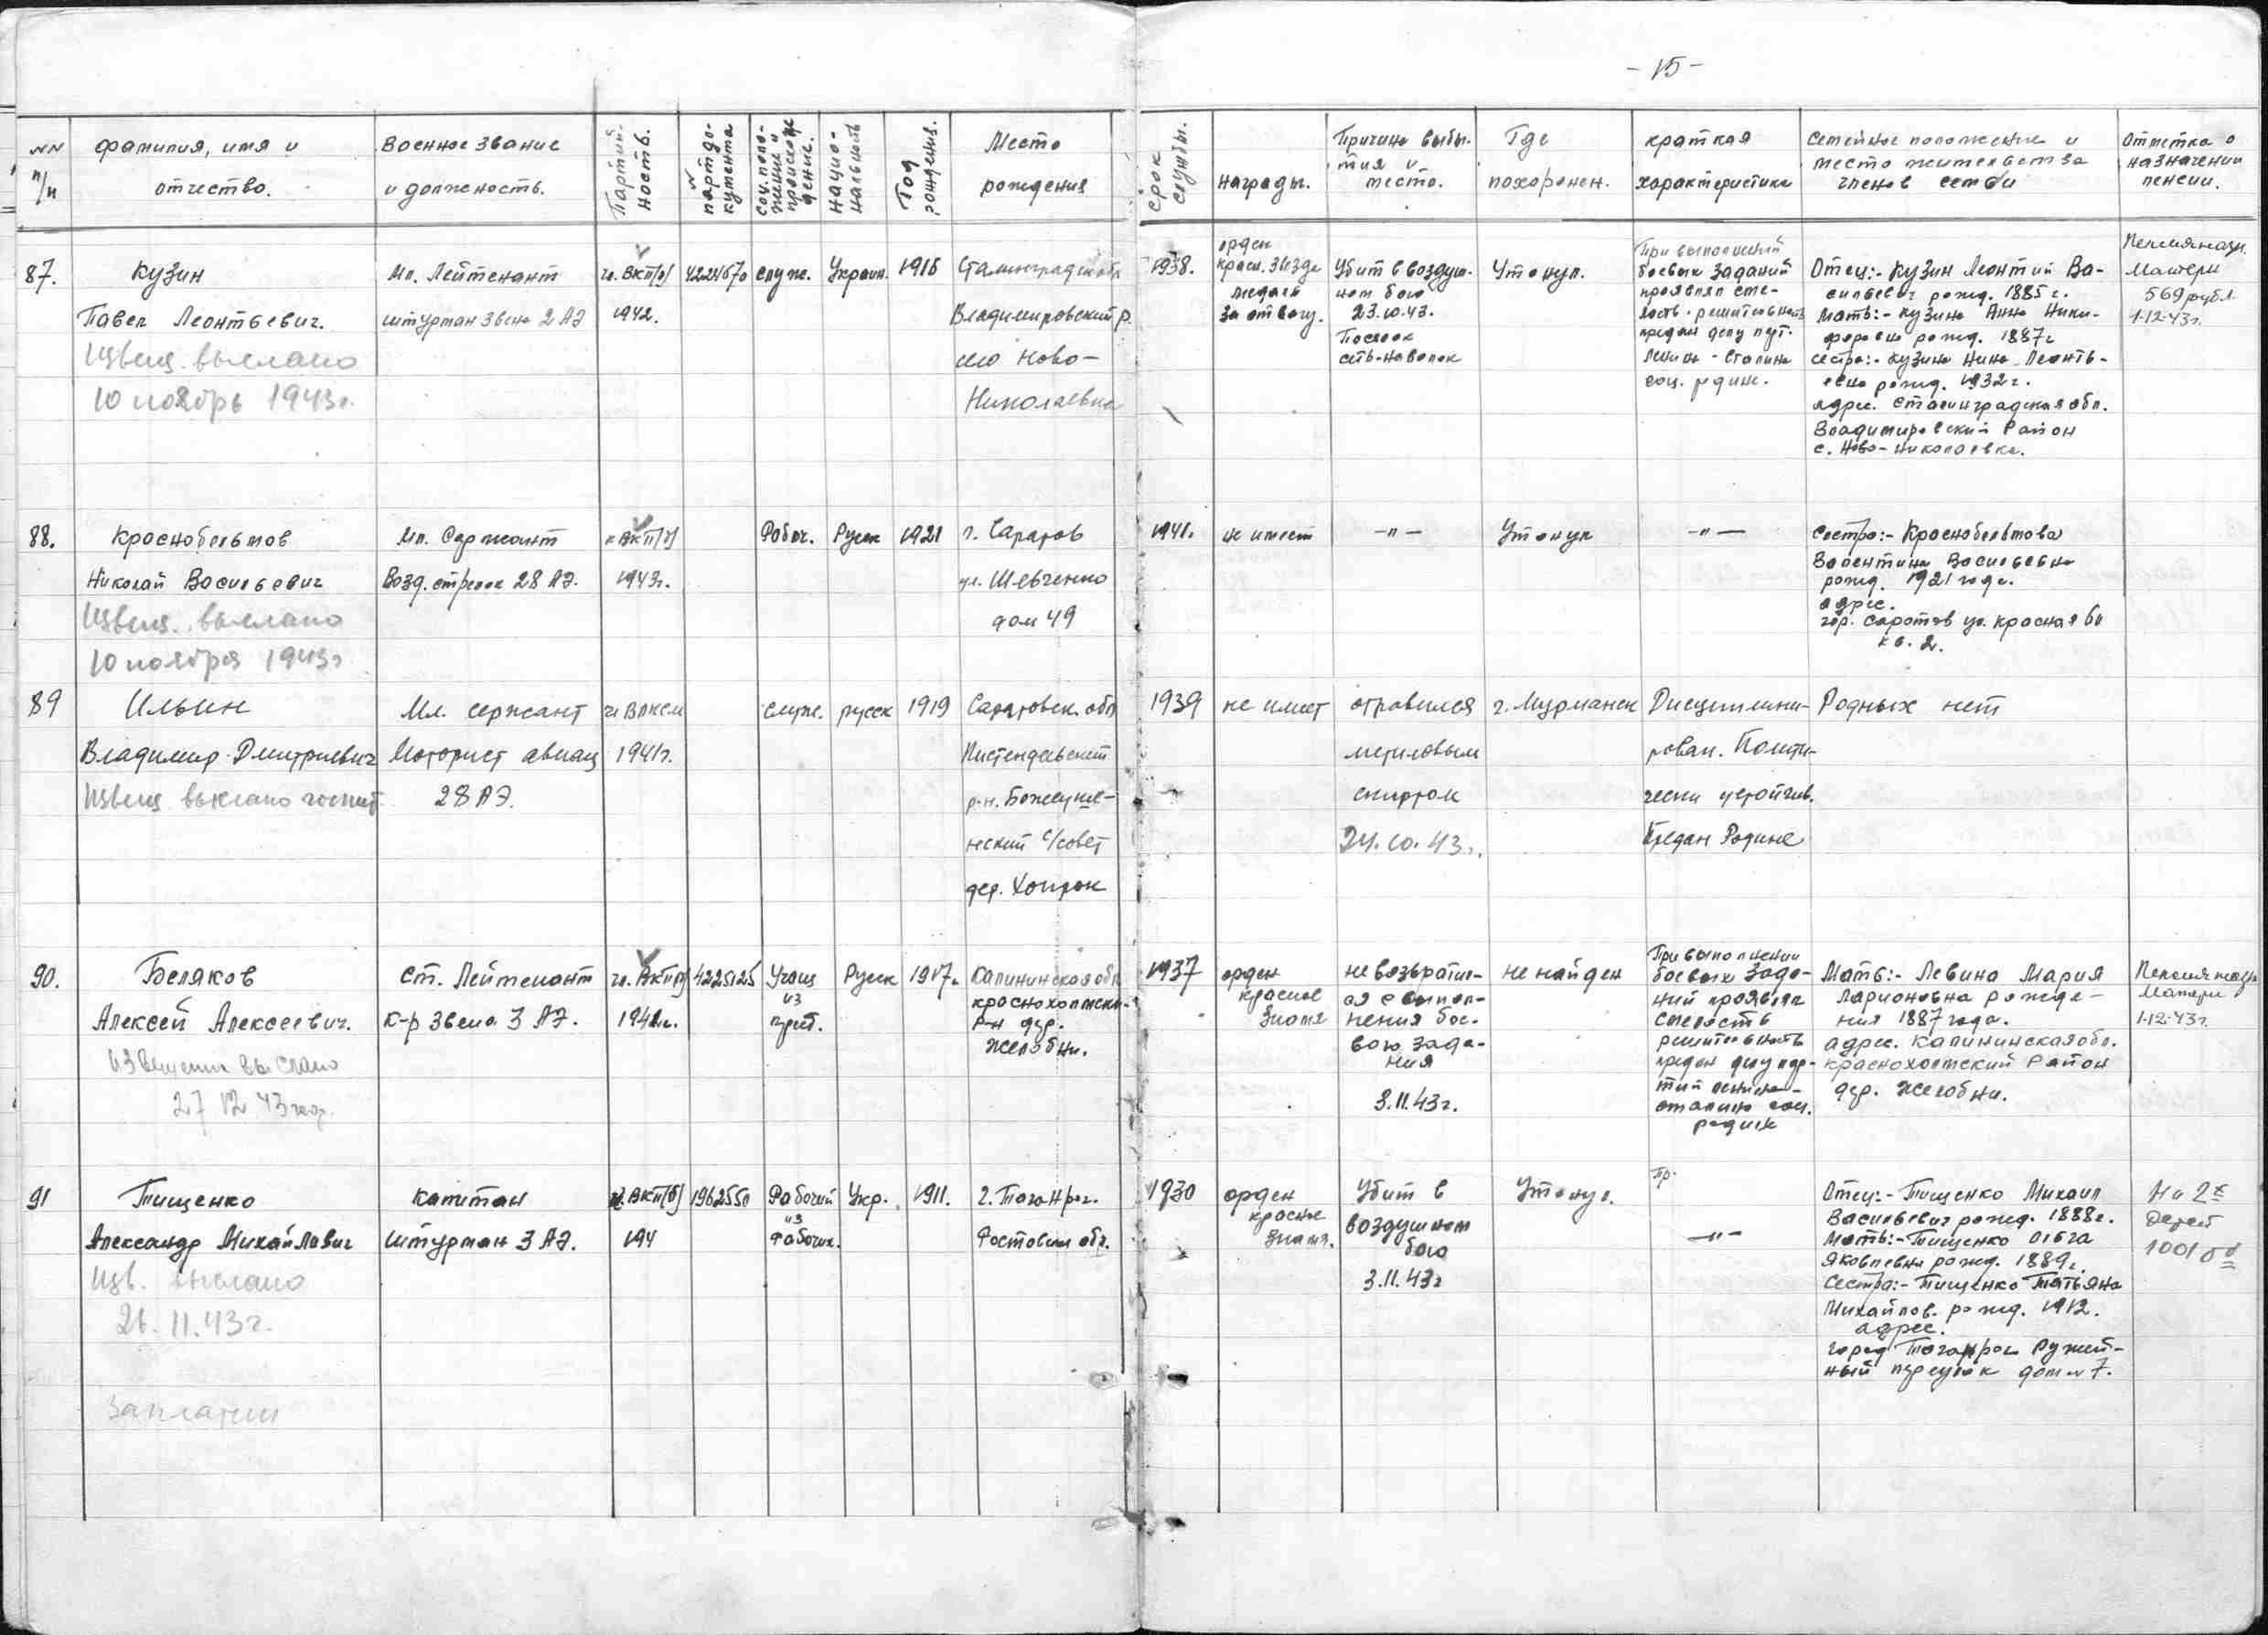 - 15 -
NN п/п
фамилия, имя и отчество.
Военное звание и должность.
Партий-ность.
N партдо-кумента
Соц. поло-жение и происхож дение.
Нацио-нальность
Год рождения.
Место рождения
Срок службы.
награды.
Причина выбы-тия и место.
Где похоронен.
краткая характеристика
Семейное положение и место жительства членов семьи
Отметка о назначении пенсии.
87.
Кузин
Павел Леонтьевич.
Извещ. выслано
10 ноябрь 1943г.
Мл. Лейтенант
штурман звена 2 АЭ
чл. ВКП(б)
1942.
служ.
Украин.
Сталинградск обл
Владимировский р.
село Ново-
Николаевка
1938.
орден
красн. звезда
медаль
за отвагу.
Убит в воздуш-
ном бою
23.10.43.
Поселок
сеть-наволок
Утонул.
При выполнении
боевых заданий
проявлял сме-
лость. решительность
предан делу пут.
Ленина - Сталина
соц. родине.
Отец:- Кузин Леонтий Ва-
сильевич рожд. 1885 г.
Мать:- Кузина Анна Ники-
форовна рожд. 1887г
сестра:- Кузина Нина Леонть-
евна рожд. 1932 г.
адрес. Сталинградская обл.
Владимировский Район
с. Ново-Николаевка.
Пенсия назн.
Матери
569 рубл.
1-12-43г.
88.
Краснобельмов
Николай Васильевич
Извещ. выслано
10 ноября 1943г
Мл. Сержант
Возд. стрелок 28 АЭ.
к ВКП(б)
1943г.
Рабоч.
Русск
1921
г. Саратов
ул. Шевченко
дом 49
1941.
не имеет
-"-
Утонул
-"-
Сестра:- Краснобельмова
Валентина Васильевна
рожд. 1921 года.
адрес.
гор. Саратов ул. Красная 60
кв. 2.
89
Ильин
Владимир Дмитриевич
Извещ выслано
Мл. сержант
Моторист авиац
28 АЭ.
чл ВЛКСМ
1941г.
служ.
русск
1919
Саратовск. обл
р-н.
нский с/совет
дер.
1939
не имеет
отравился
метиловым
спиртом
24.10.43г.
г. Мурманск
Дисциплини-
рован. Полити-
чески устойчив.
Предан Родине
Родных нет
90.
Беляков
Алексей Алексеевич.
Извещение выслано
27 12 43 год.
Ст. Лейтенант
К-р звена 3 АЭ.
чл. ВКП(б)
4225125
Учащ
из
Русск
1917г.
Калининская обл
Краснохолмски-
р-н дер.
Желобни.
1937
орден
красное
знамя
не возврати-
ся с выпол-
нения бое-
вого зада-
ния
3.11.43г.
не найден
При выполнении
боевых зада-
ний проявлял
смелость
решительность
предан делу пар-
тии ленина-
сталина соц.
родине
Мать:- Левина Мария
Ларионовна рожде-
ния 1887 года.
адрес. Калининская обл.
Краснохолмский Район
дер. Желобни.
Пенсия назн
Матери
1-12-43г.
91
Тищенко
Александр Михайлович
Изв. выслано
26.11.43г.
Капитан
штурман 3 АЭ.
чл. ВКП(б)
194
1962550
Рабочий
из
рабочих.
Укр.
1911.
г. Таганрог.
Ростовск обл.
1930
орден
красное
знамя.
Убит в
воздушном
бою
3.11.43г
Утонул.
Пр.
-"-
Отец:- Тищенко Михаил
Васильевич рожд. 1888г.
Мать:- Тищенко Ольга
Яковлевна рожд. 1889г.
Сестра:- Тищенко Татьяна
Михайлов. рожд. 1912.
адрес.
город Таганрог Ружей-
ный переулок дом № 7.
На 2х
детей